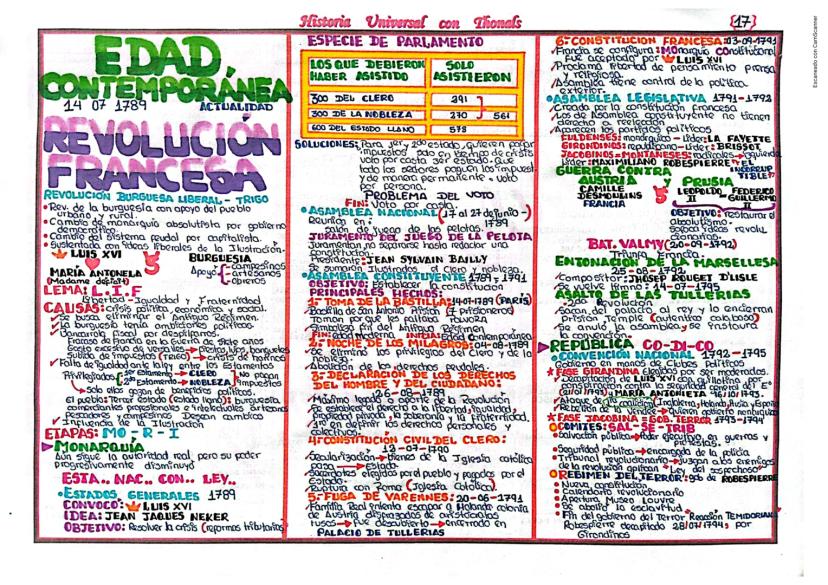 Historia Universal con Thonals
{17}
Escaneado con CamScanner
EDAD
CONTEMPORÁNEA
14 07 1789 ACTUALIDAD
REVOLUCIÓN
FRANCESA
REVOLUCIÓN BURGUESA LIBERAL - TRIGO
• Rev. de la burguesía con apoyo del pueblo
urbano y rural.
• Cambio de monarquía absolutista por gobierno
democrático.
• Cambio del sistema feudal por capitalista.
• Sustentada con ideas liberales de la Ilustración.
LUIS XVI
MARÍA ANTONELA
(Madame déficit)
BURGUESÍA
Apoyo
campesinos
artesanos
obreros
LEMA: L.I.F
Libertad - Igualdad y Fraternidad
CAUSAS: crisis política, económica y social.
Se busca eliminar el Antiguo Régimen.
La burguesía tenía ambiciones políticas.
Bancarrota fiscal por despilfarros.
Fracaso de Francia en la Guerra de Siete años
Gasto excesivo de vestidos
Subida de impuestos (TRIGO)
Falta de igualdad ante la ley entre los Estamentos
Privilegiados
1er Estamento → CLERO
2do Estamento → NOBLEZA
No pagan
impuestos
Solo ellos gozan de beneficios políticos.
El pueblo: Tercer Estado (Estado llano): burguesía
comerciantes profesionales e intelectuales artesanos
Pescadores y campesinos Desean cambios
Influencia de la Ilustración
ETAPAS: MO - R - I
MONARQUÍA
Aún sigue la autoridad real pero su poder
progresivamente disminuyó
ESTA.. NAC.. CON.. LEY..
• ESTADOS GENERALES 1789
CONVOCÓ: LUIS XVI
IDEA: JEAN JAQUES NEKER
OBJETIVO: Resolver la crisis (reformas tributarias)
ESPECIE DE PARLAMENTO
LOS QUE DEBIERON
HABER ASISTIDO
SOLO
ASISTIERON
300 DEL CLERO 291
300 DE LA NOBLEZA 270 561
600 DEL ESTADO LLANO 578
SOLUCIONES: Para 1er y 2do estado, quieren pagar
impuestos solo en tiempo de crisis
voto por casta. 3er estado: que
todos los sectores paguen los impuestos
y de manera permanente. Voto
por persona.
PROBLEMA DEL VOTO
FIN: Voto por casta.
• ASAMBLEA NACIONAL (17 al 27 de junio -)
1789
Reunión en:
salón de juego de las pelotas.
JURAMENTO DEL JUEGO DE LA PELOTA
Juramentan no separarse hasta redactar una
constitución.
Presidente: JEAN SYLVAIN BAILLY
Se sumaron Ilustrados, el clero y nobleza
• ASAMBLEA CONSTITUYENTE 1789 - 1791
OBJETIVO: Establecer la constitución
PRINCIPALES HECHOS:
1: TOMA DE LA BASTILLA: 14-07-1789 (PARÍS)
Bastilla de San Antonio Prisión (7 prisioneros)
Toman por que les faltaba Pólvora
Simboliza fin del Antiguo Régimen
FIN: Edad Moderna INICIA: Edad Contemporánea
2: NOCHE DE LOS MILAGROS: 04-08-1789
Se eliminó los privilegios del Clero y de la
nobleza.
Abolición de los derechos feudales.
3: DECLARACIÓN DE LOS DERECHOS
DEL HOMBRE Y DEL CIUDADANO:
26-08-1789
Máximo legado o aporte de la Revolución
Se establece el derecho a la libertad, igualdad,
Propiedad privada, la soberanía y la fraternidad.
1ero en definir los derechos personales y
colectivos.
4: CONSTITUCIÓN CIVIL DEL CLERO:
12-07-1790
Secularización → bienes de la Iglesia católica
pasa → Estado
Sacerdotes elegidos por el pueblo y pagados por el
Estado
Ruptura con Roma (Iglesia Católica).
5: FUGA DE VARENNES: 20-06-1791
Familia Real intenta escapar a Holanda colonia
de Austria disfrazados de aristócratas
rusos → Fue descubierto → encerrado en
PALACIO DE TULLERÍAS
6: CONSTITUCIÓN FRANCESA: 03-09-1791
Francia se configura: MOnarquía COnstitucional
Fue aceptado por LUIS XVI
Proclama libertad de pensamiento prensa
y religiosa.
Asamblea tiene control de la política
exterior.
• ASAMBLEA LEGISLATIVA 1791-1792
Creado por la constitución Francesa
Los de Asamblea constituyente no tienen
derecho a reelección
Aparecen los partidos políticos
FULDENSES: monárquico - Líder: LA FAYETTE
GIRONDINOS: republicano - Líder: BRISSOT
JACOBINOS = MONTAÑESES: radicales → izquierda
Líder: MAXIMILIANO ROBESPIERRE → EL
INCORRUP
TIBLE
GUERRA CONTRA
AUSTRIA Y PRUSIA
CAMILLE
DESMOULINS
FRANCIA
LEOPOLDO
II
FEDERICO
GUILLERMO
II
OBJETIVO: restaurar el
absolutismo.
BAT. VALMY (20-09-1792)
Triunfa Francia.
ENTONACIÓN DE LA MARSELLESA
25-08-1792
Compositor: JHOSEP ROUGET D'LISLE
Se vuelve Himno: 14-07-1795
ASALTO DE LAS TULLERÍAS
2da Revolución
Sacan del palacio al rey y lo encierran
Prisión Temple (Auténtico calabozo)
Se anuló la asamblea y se instaura
la convención.
REPÚBLICA CO-DI-CO
• CONVENCIÓN NACIONAL 1792-1795
Gobierno en manos de Clubes Políticos
FASE GIRONDINA elegidos por ser moderados.
Decapitación de LUIS XVI con guillotina por
conspiración contra la seguridad general del Eº
(21/01/1793), MARÍA ANTONIETA 16/10/1793.
Ataque de 1era coalición (Inglaterra, Holanda, Rusia, España)
Rebelión de La Vendée → Quieren gobierno monárquico
FASE JACOBINA → GOB. TERROR 1793-1794
COMITÉS: SAL-SE-TRIB
Salvación pública → Poder ejecutivo, en guerras y
protestas.
Seguridad pública → encargada de la policía
Tribunal revolucionario → juzgan a los enemigos
de la revolución aplican "Ley del sospechoso"
REBIMEN DEL TERROR: gob de ROBESPIERRE
• Nueva constitución
• Calendario revolucionario
• Apertura Museo Louvre
• Se abolió la esclavitud
• Fin del gobierno del Terror Reacción TEMIDORIANA
Robespierre decapitado 28/07/1794, por
Girondinos